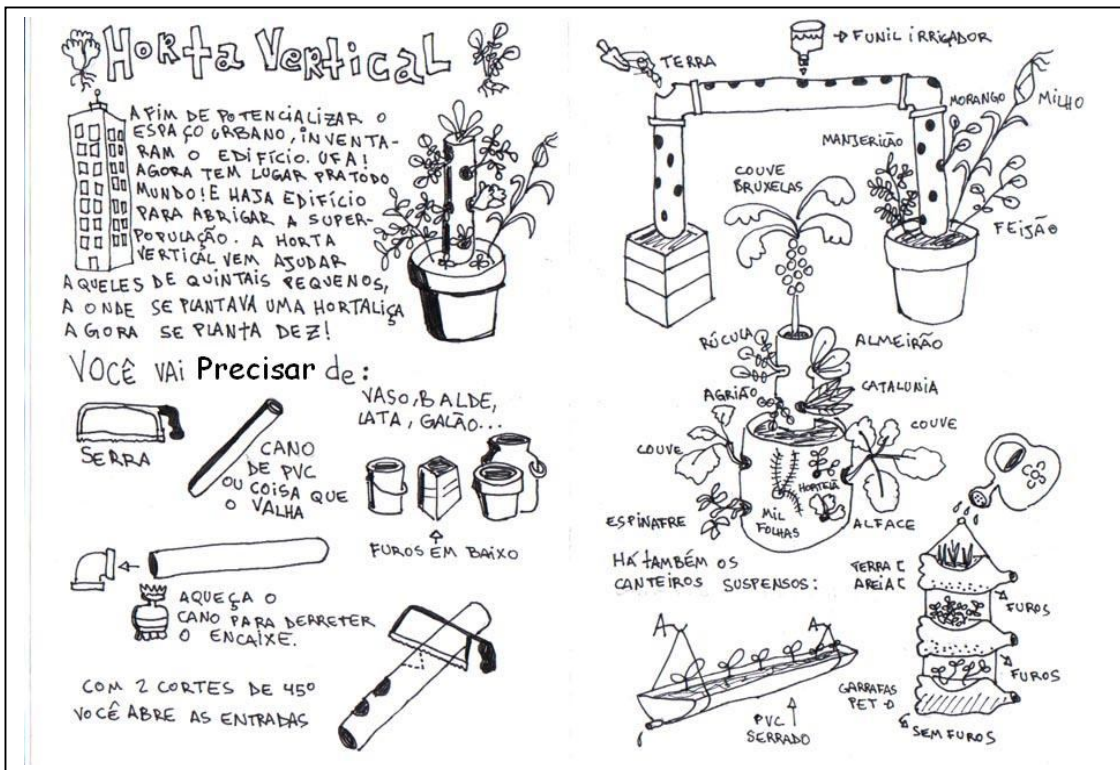 Horta Vertical
A FIM DE POTENCIALIZAR O
ESPAÇO URBANO, INVENTA-
RAM O EDIFÍCIO. UFA!
AGORA TEM LUGAR PRA TODO
MUNDO! E HAJA EDIFÍCIO
PARA ABRIGAR A SUPER-
POPULAÇÃO. A HORTA
VERTICAL VEM AJUDAR
AQUELES DE QUINTAIS PEQUENOS,
A ONDE SE PLANTAVA UMA HORTALIÇA
AGORA SE PLANTA DEZ!
VOCÊ VAI Precisar de:
SERRA
CANO
DE PVC
OU COISA QUE
O VALHA
VASO, BALDE,
LATA, GALÃO...
FUROS EM BAIXO
AQUEÇA O
CANO PARA DERRETER
O ENCAIXE.
COM 2 CORTES DE 45º
VOCÊ ABRE AS ENTRADAS
FUNIL IRRIGADOR
TERRA
MORANGO
MILHO
MANJERICÃO
FEIJÃO
COUVE
BRUXELAS
RÚCULA
ALMEIRÃO
AGRIÃO
CATALUNIA
COUVE
COUVE
HORTELÃ
MIL
FOLHAS
ESPINAFRE
ALFACE
HÁ TAMBÉM OS
CANTEIROS SUSPENSOS:
TERRA
AREIA
FUROS
FUROS
GARRAFAS
PET
SEM FUROS
PVC
SERRADO